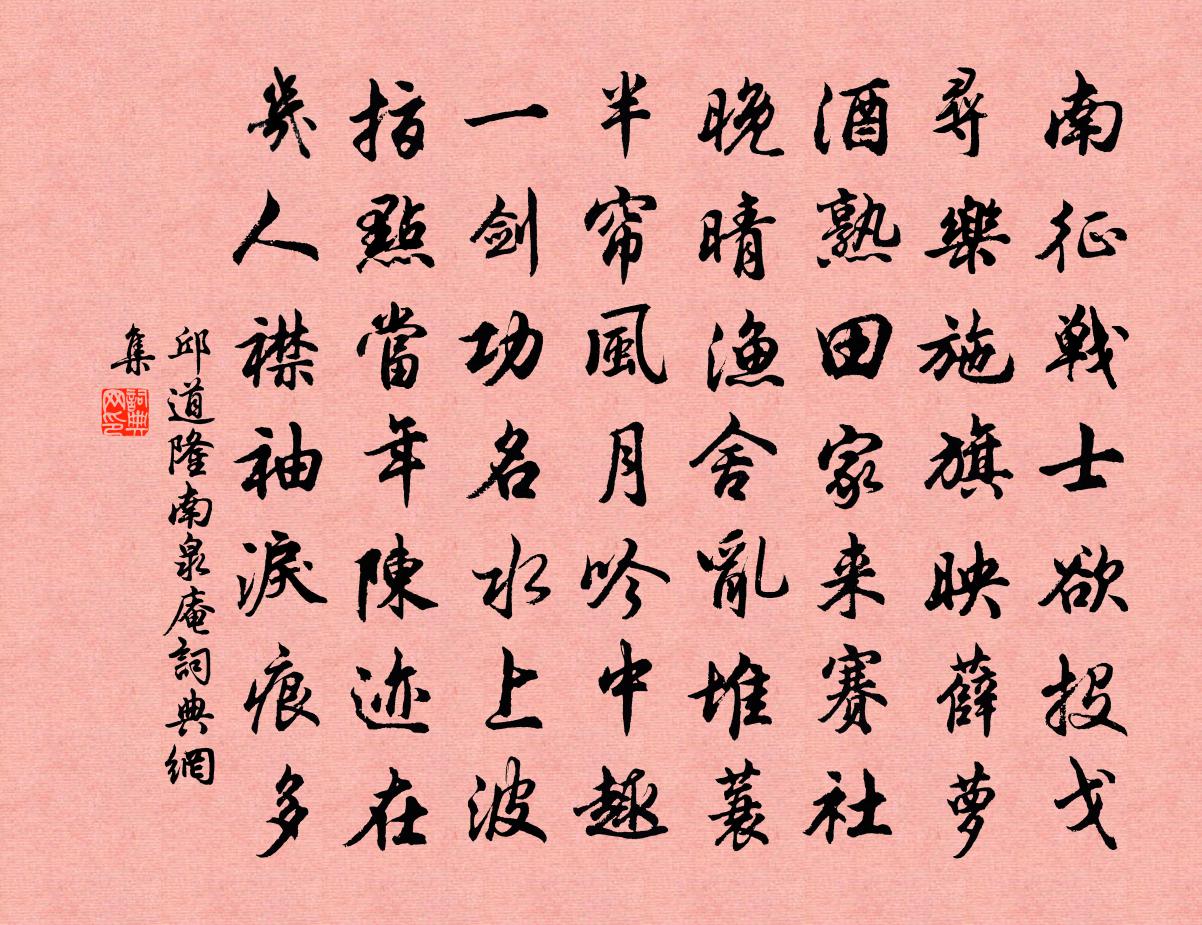 南征戰士欲投戈
尋樂施旗映薜蘿
酒熟田家来賽社
晚晴漁舍亂堆蓑
半帘風月吟中趣
一劍功名水上波
指點當年陳迹在
幾人襟袖淚痕多
邱道隆南泉庵詞典網
集
詞典網印